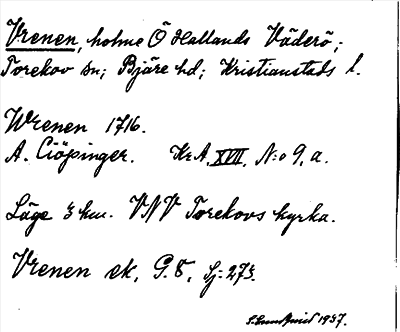 Vrenen, holme Ö Hallands Väderö;
Torekov sn; Bjäre hd; Kristianstads l.
Wrenen 1716.
A. Ciöpinger. KrA, XVII, N:o 9, a.
Läge 3 km. VNV Torekovs kyrka.
Vrenen ek, G. 8, Sj: 273.
1937.